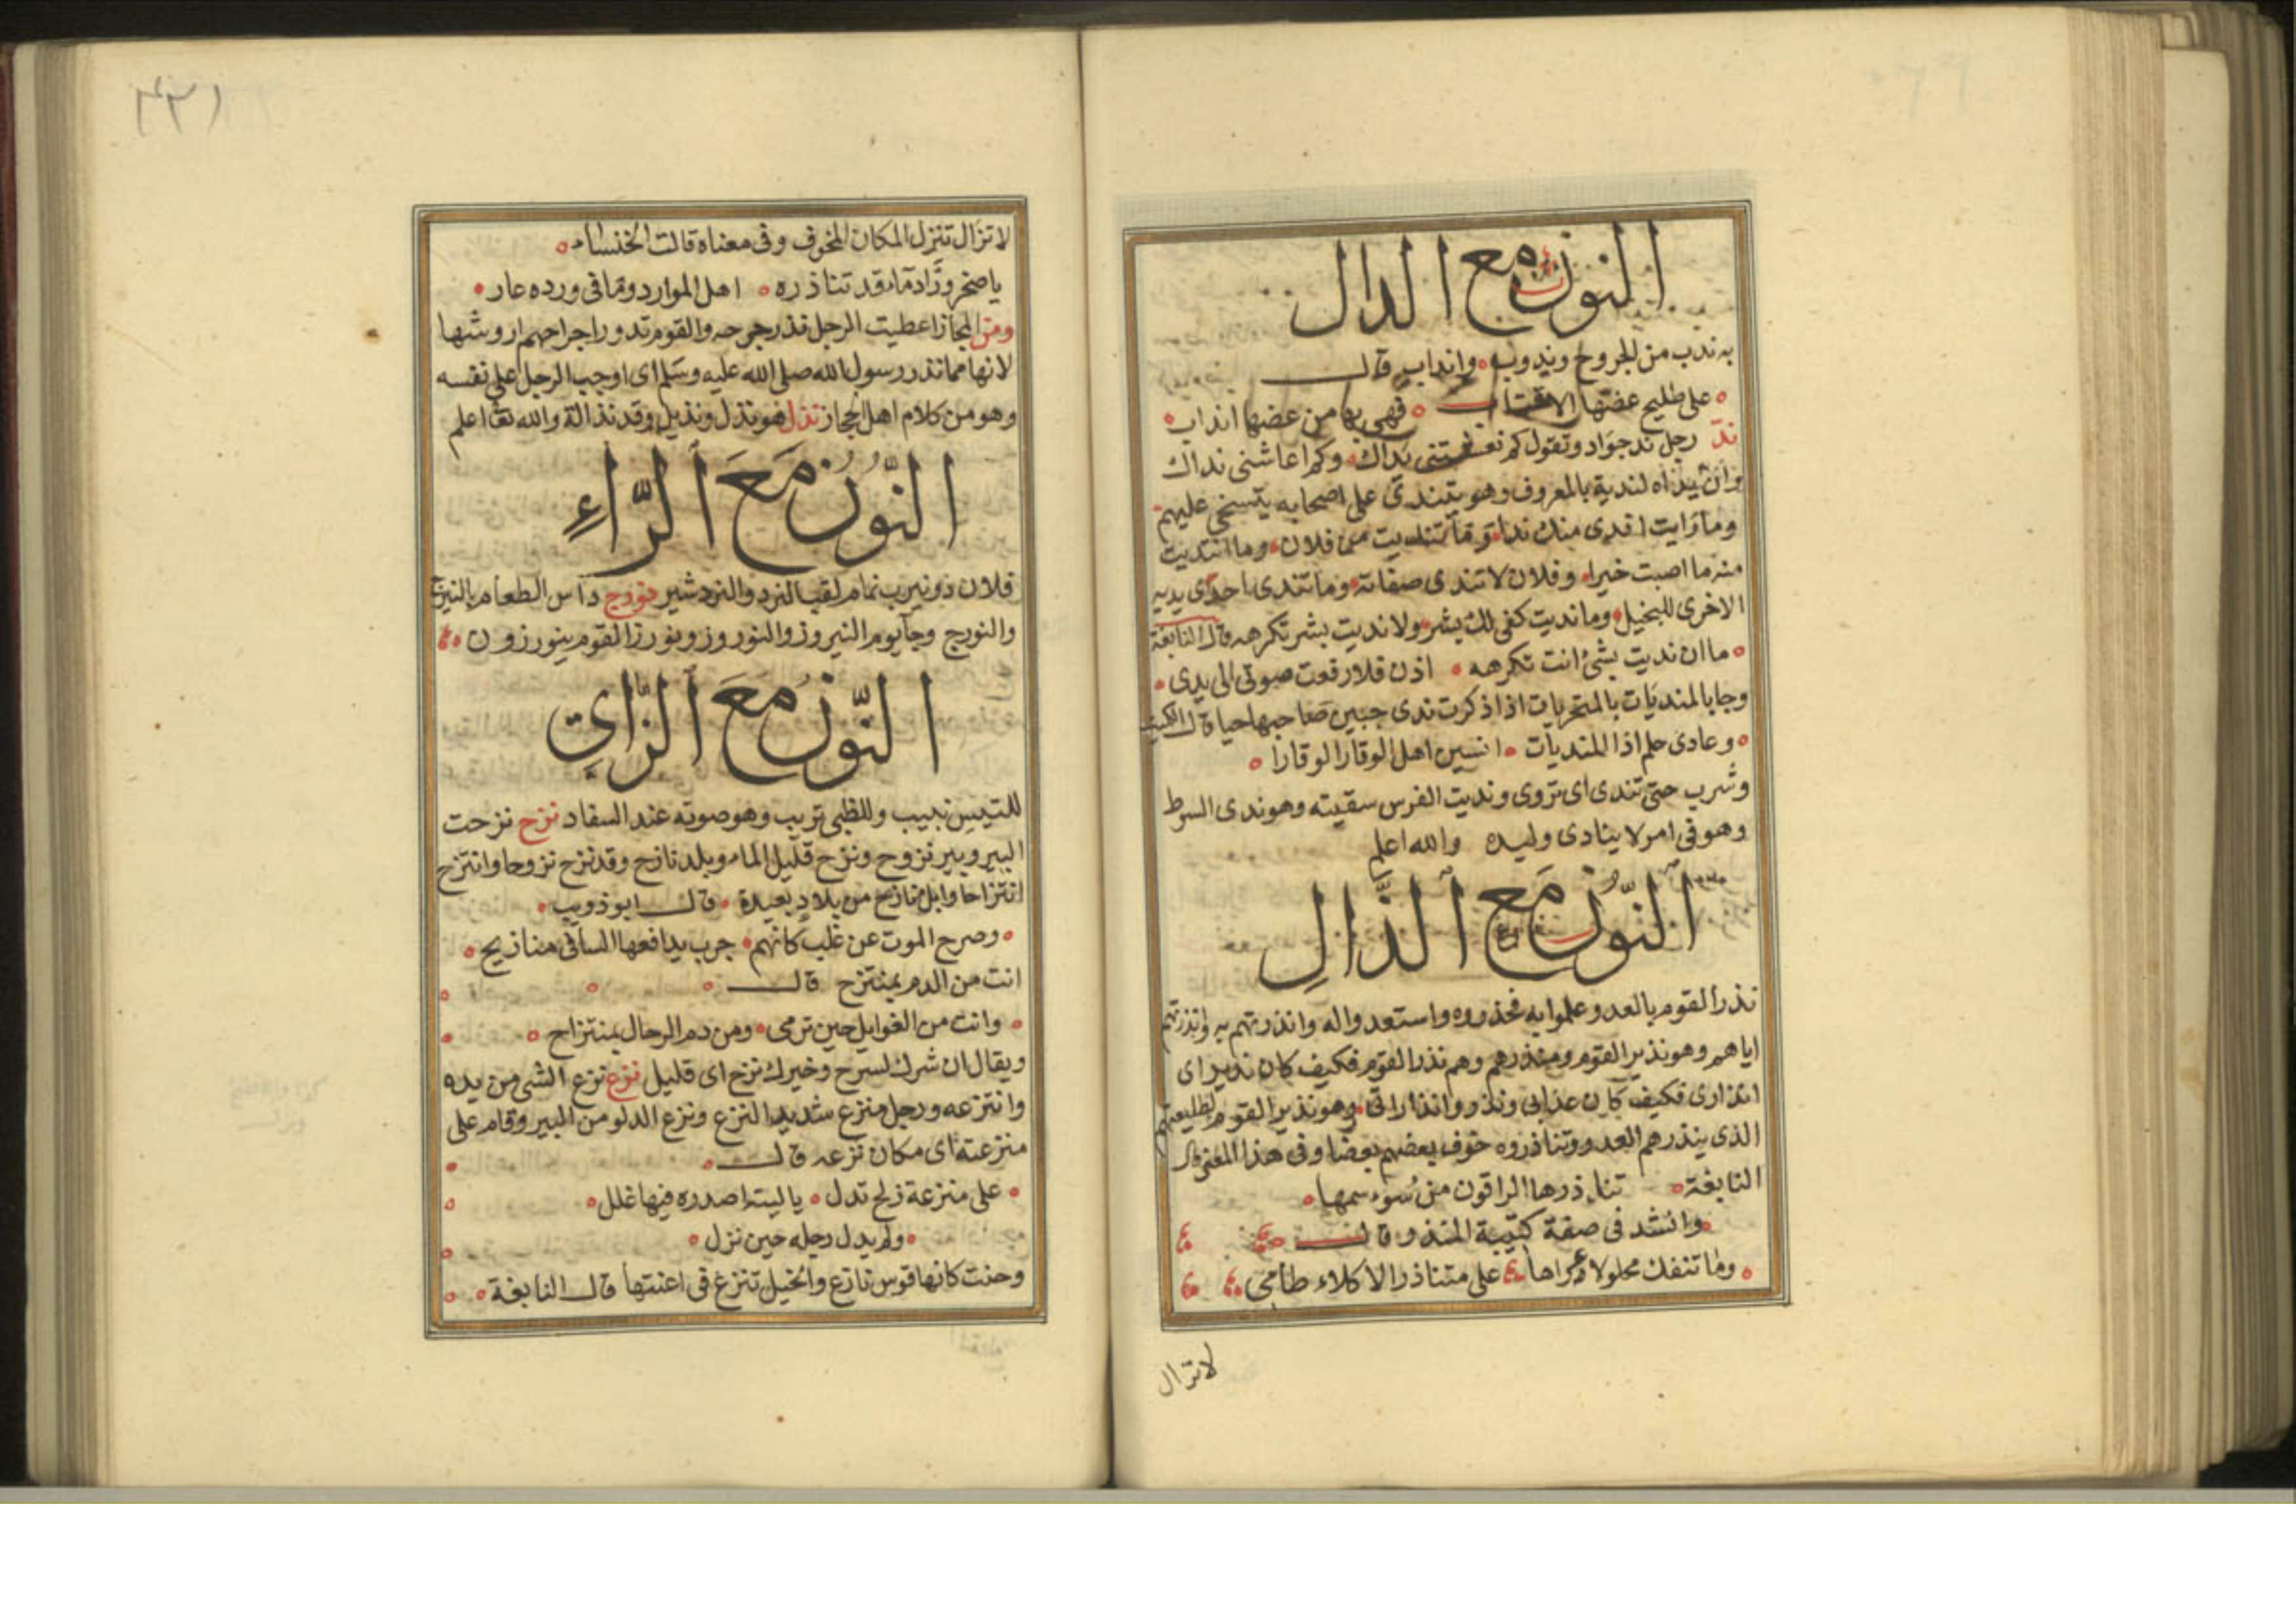 النون مع الدال
به ندب من الجروح وندوب وانداب قال
على طليح عضتها الاقتاب فهى بها من عضها انداب
ند رجل ند جواد وتقول كم نداك وكم اعاشنى نداك
وان يداه لندية بالمعروف وهو يتندى على اصحابه يتسخى عليهم
وما رايت اندى منك ندا وما تنديت من فلان وما انتديت
منه ما اصبت خيرا وفلان لا تندى صفاته وما تندى احدى يديه
الاخرى للبخيل وما نديت كفى لك بشر ولا نديت بشر تكرهه قال النابغة
ما ان نديت بشئ انت تكرهه اذن فلا رفعت صوتى الى يدى
وجا بالمنديات بالمخزيات اذا ذكرت ندى جبين صاحبها حيا قال الكميت
وعادى حلم اذا المنديات انسين اهل الوقار الوقارا
وشرب حتى تندى اى تروى ونديت الفرس سقيته وهو ندى السرط
وهو فى امر لا ينادى وليده والله اعلم
النون مع الذال
نذر القوم بالعدو علموا به فحذروه واستعدوا له وانذرتهم به وانذرتهم
اياهم وهو نذير القوم ومنذرهم وهم نذر القوم فكيف كان نذير اى
انذارى فكيف كان عذابى ونذر وانذاراتى وهو نذير القوم لطليعتهم
الذى ينذرهم العدو وتناذروه خوف بعضهم بعضا وفى هذا المعنى قال
النابغة تناذرها الراقون من سوء سمها
وانشد فى صفة كتيبة المنذر وقال
وما تنفك محلولا عراها على متناذر الاكلاء طامى
لا تزال
لا تزال تنزل المكان المخوف وفى معناه قالت الخنساء
يا صخر وراد ماء قد تناذره اهل الموارد وما فى ورده عار
ومن المجاز اعطيت الرجل نذر جرحه والقوم نذور اجراحهم اروشها
لانها مما نذر رسول الله صلى الله عليه وسلم اى اوجب الرجل على نفسه
وهو من كلام اهل الحجاز نذل هو نذل ونذيل وقد نذالة والله تعا اعلم
النون مع الراء
فلان ذو نيرب نمام لقب النرد والنردشير نورج داس الطعام بالنيرج
والنورج وجا يوم النيروز والنوروز ونورز القوم ينورزون
النون مع الزاى
للتيس نبيب وللظبى نزيب وهو صوته عند السفاد نزح نزحت
البير وبير نزوح ونزح قليل الماء وبلد نازح وقد نزح نزوحا وانتزح
انتزاحا وابل نازح من بلاد بعيدة قال ابو ذويب
وصرح الموت عن غلب كانهم جرب يدافعها الساقى منازيح
انت من الدم بمنتزح قال
وانت من الغوايل حين ترمى ومن دم الرجال بمنتزاح
ويقال ان شرك لسرح وخيرك نزح اى قليل نزع نزع الشى من يده
وانتزعه ورجل منزع شديد النزع ونزع الدلو من البير وقام على
منزعته اى مكان نزعه قال
على منزعة زلج تدل يا ليته اصدره فيها غلل
ولم يدل رجله حين نزل
وحنت كانها قوس نازع والخيل تنزع فى اعنتها قال النابغة